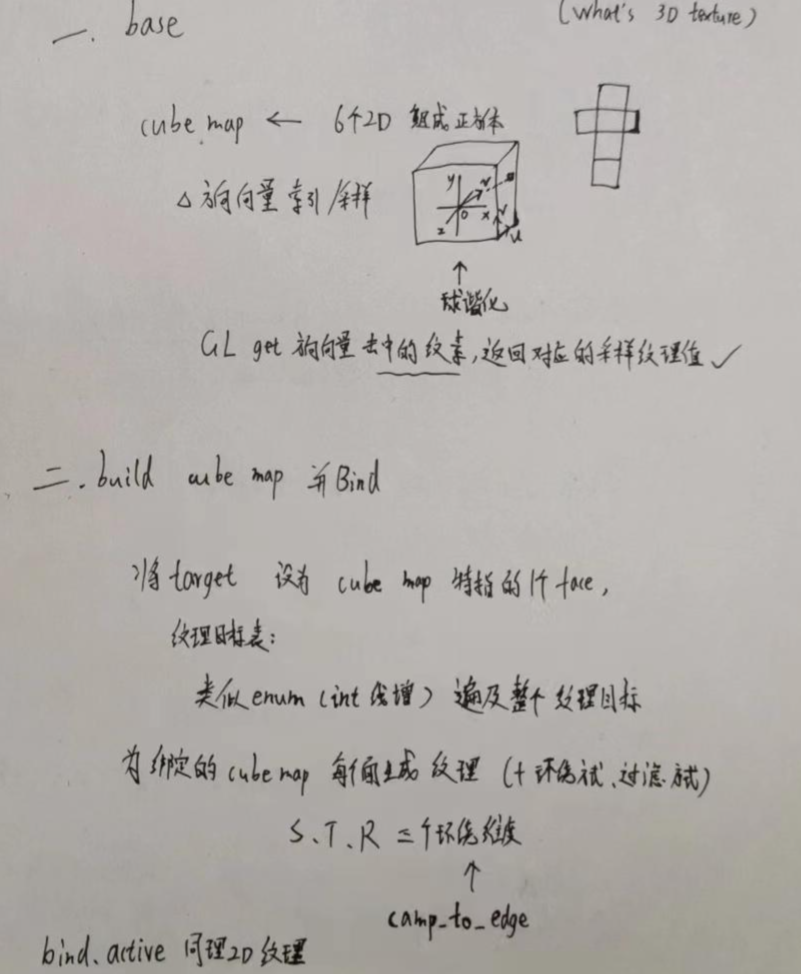 (What's 3D texture)
一. base
cube map ← 6个2D 组成正方体
△ 方向向量 索引/采样
y v x o z v u
↑
球谐化
GL get 方向向量击中的纹素,返回对应的采样纹理值 ✓
二. build cube map 并Bind
将 target 设为 cube map 特指的1个face,
纹理目标表:
类似enum (int 线增) 遍及整个纹理目标
为绑定的 cube map 每个面生成纹理 (+ 环绕方式、过滤方式)
S、T、R 三个环绕维度
↑
camp_to_edge
bind、active 同理2D纹理